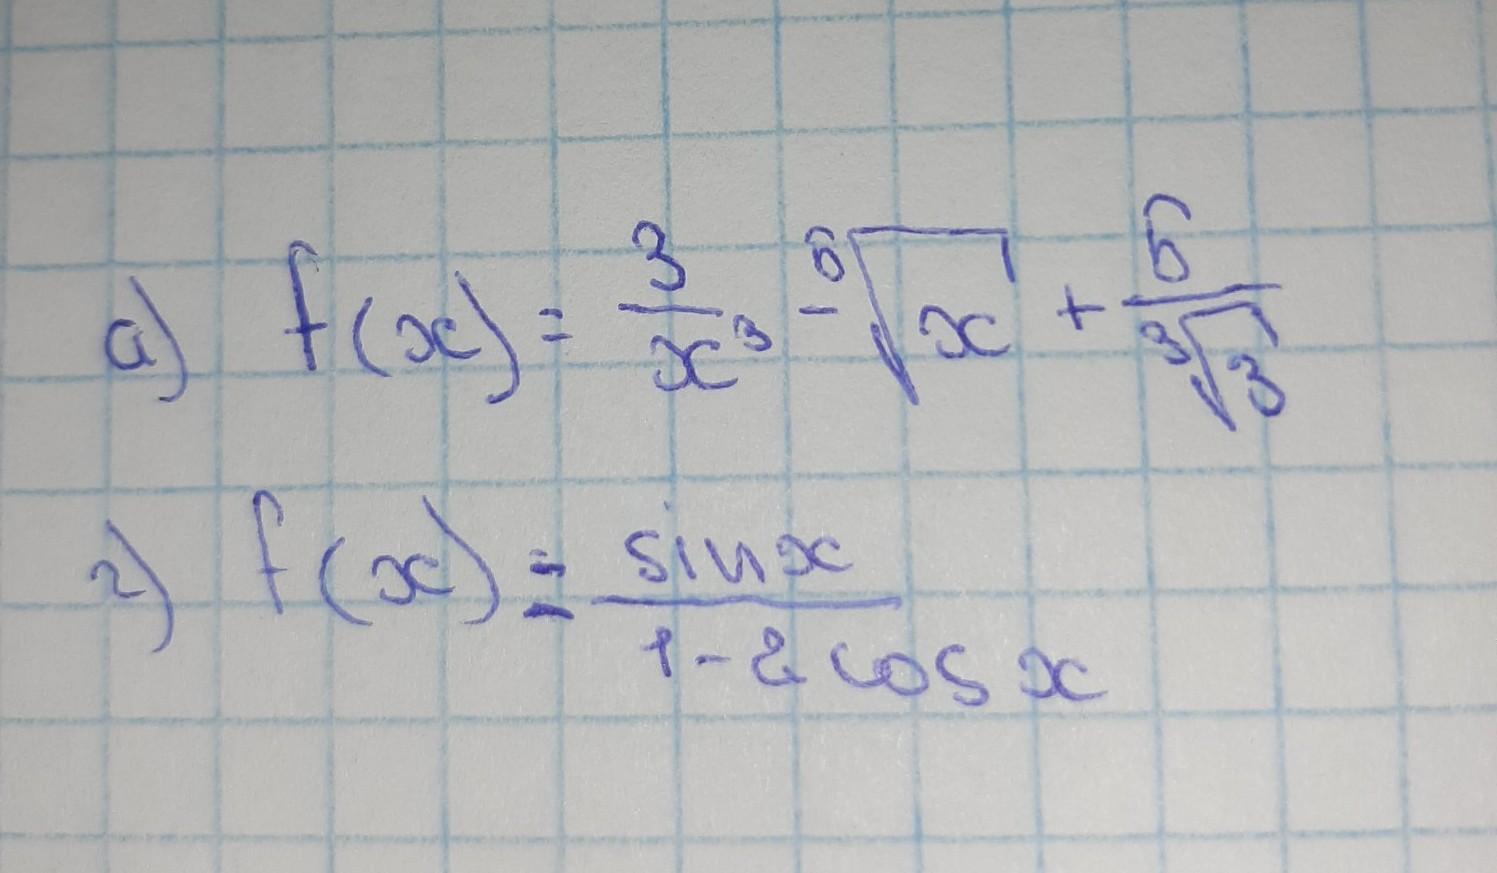 а) f(x) = 3/x³ - ⁶√x + 6/³√3
г) f(x) = sin x/1-2 cos x